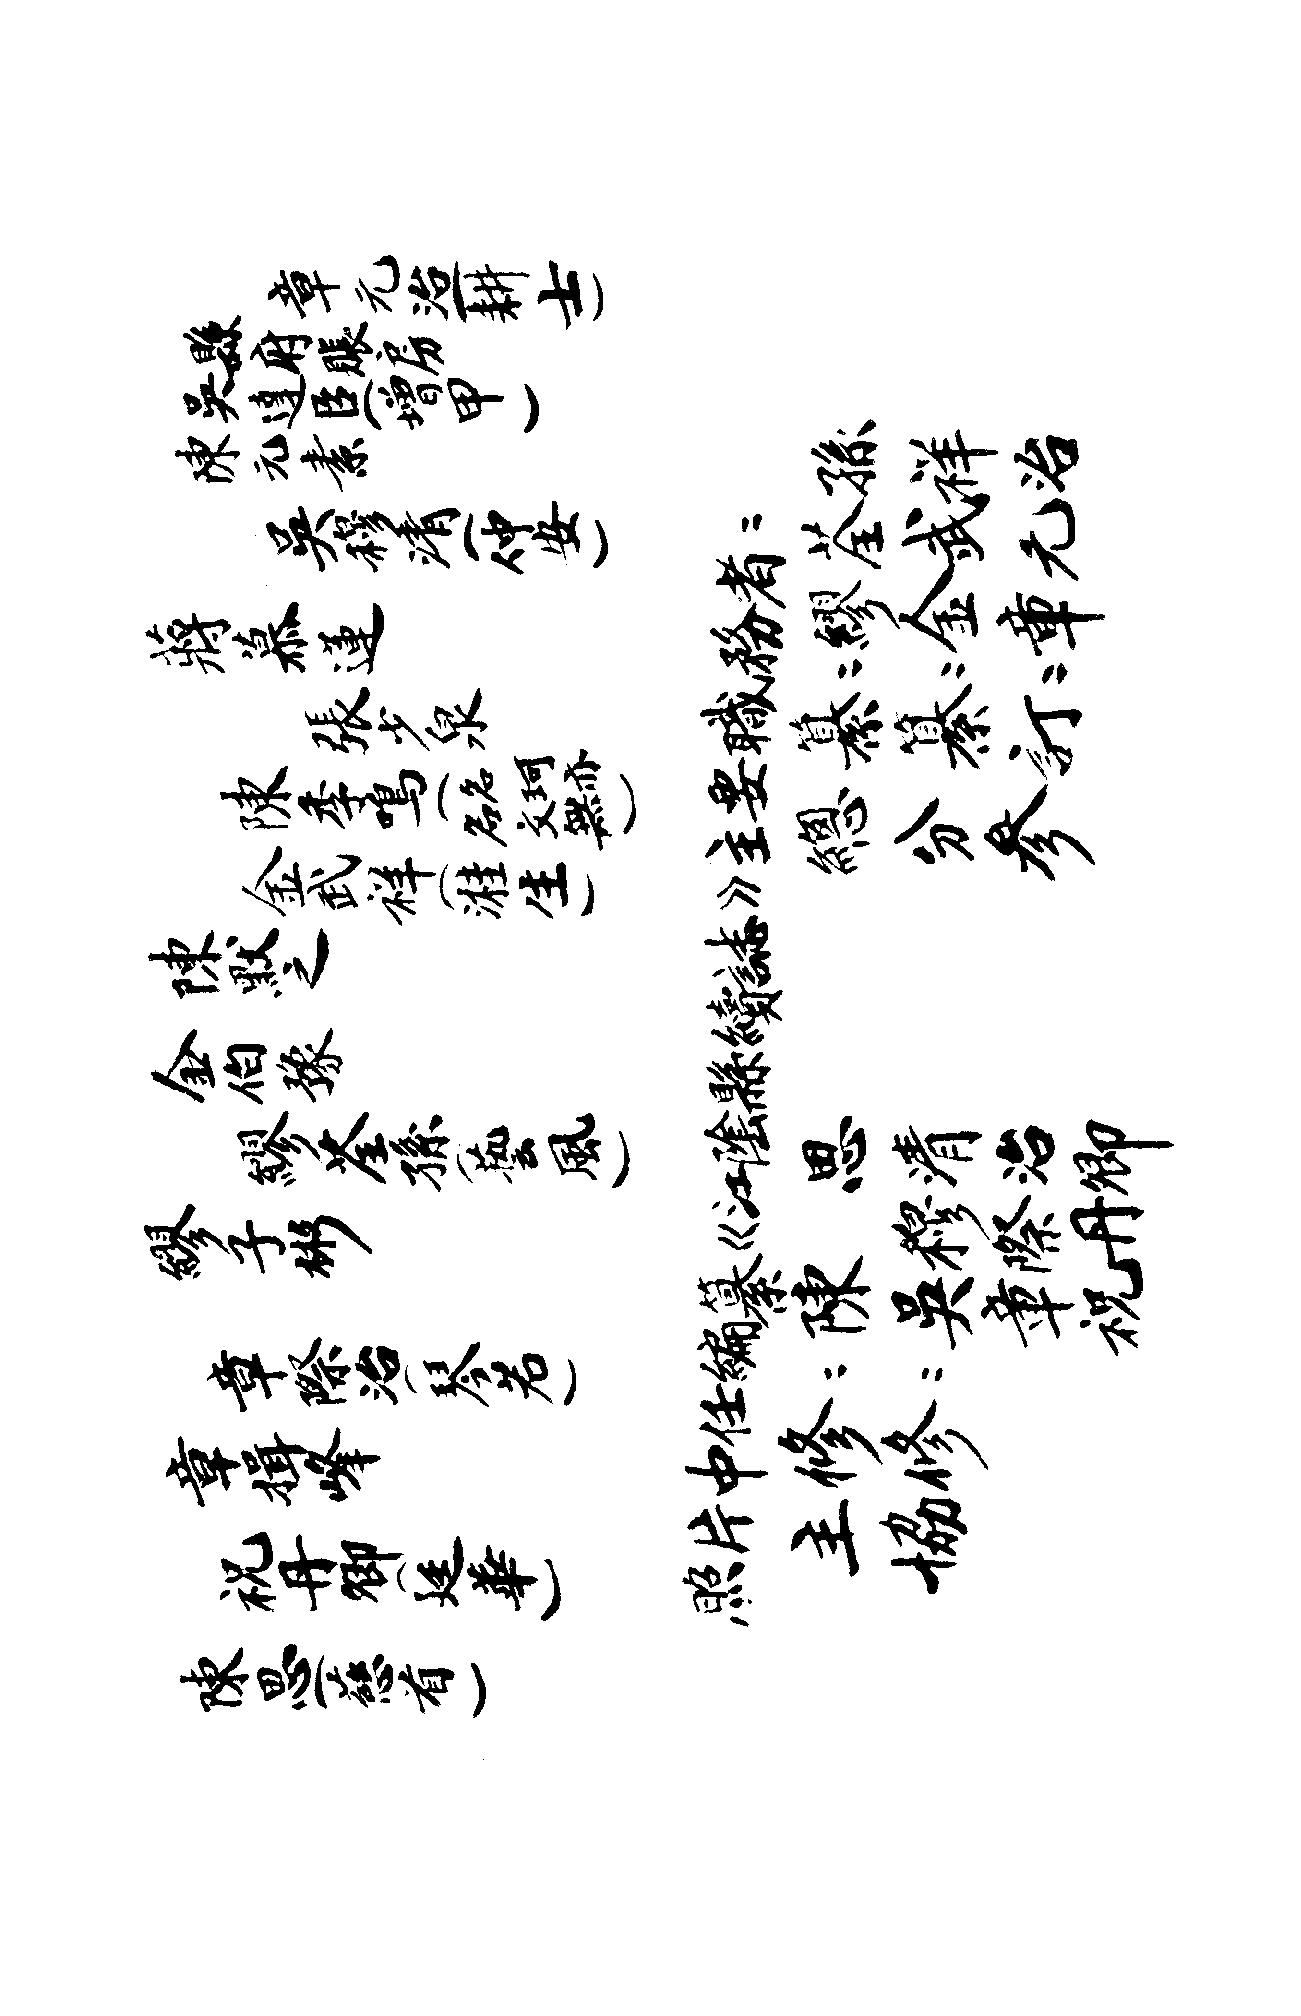 陳思(慈首)
祝丹卿(廷華)
章揖峰
章際治(琴若)
繆子彬
繆荃孫(藝風)
金伯豫
陳默之
金武祥(溎生)
陳季鳴(名名文珂無亦)
張少泉
蔣慕蓮
吳穆清(仲安)
陳元素
吳達臣(增甲)
縣府賬房
章元治(耕士)
照片中任編纂《江陰縣續誌》主要職務者：
主修：陳思 總纂：繆荃孫
協修：吳穆清 分纂：金武祥
章際治 參訂：章元治
祝丹卿